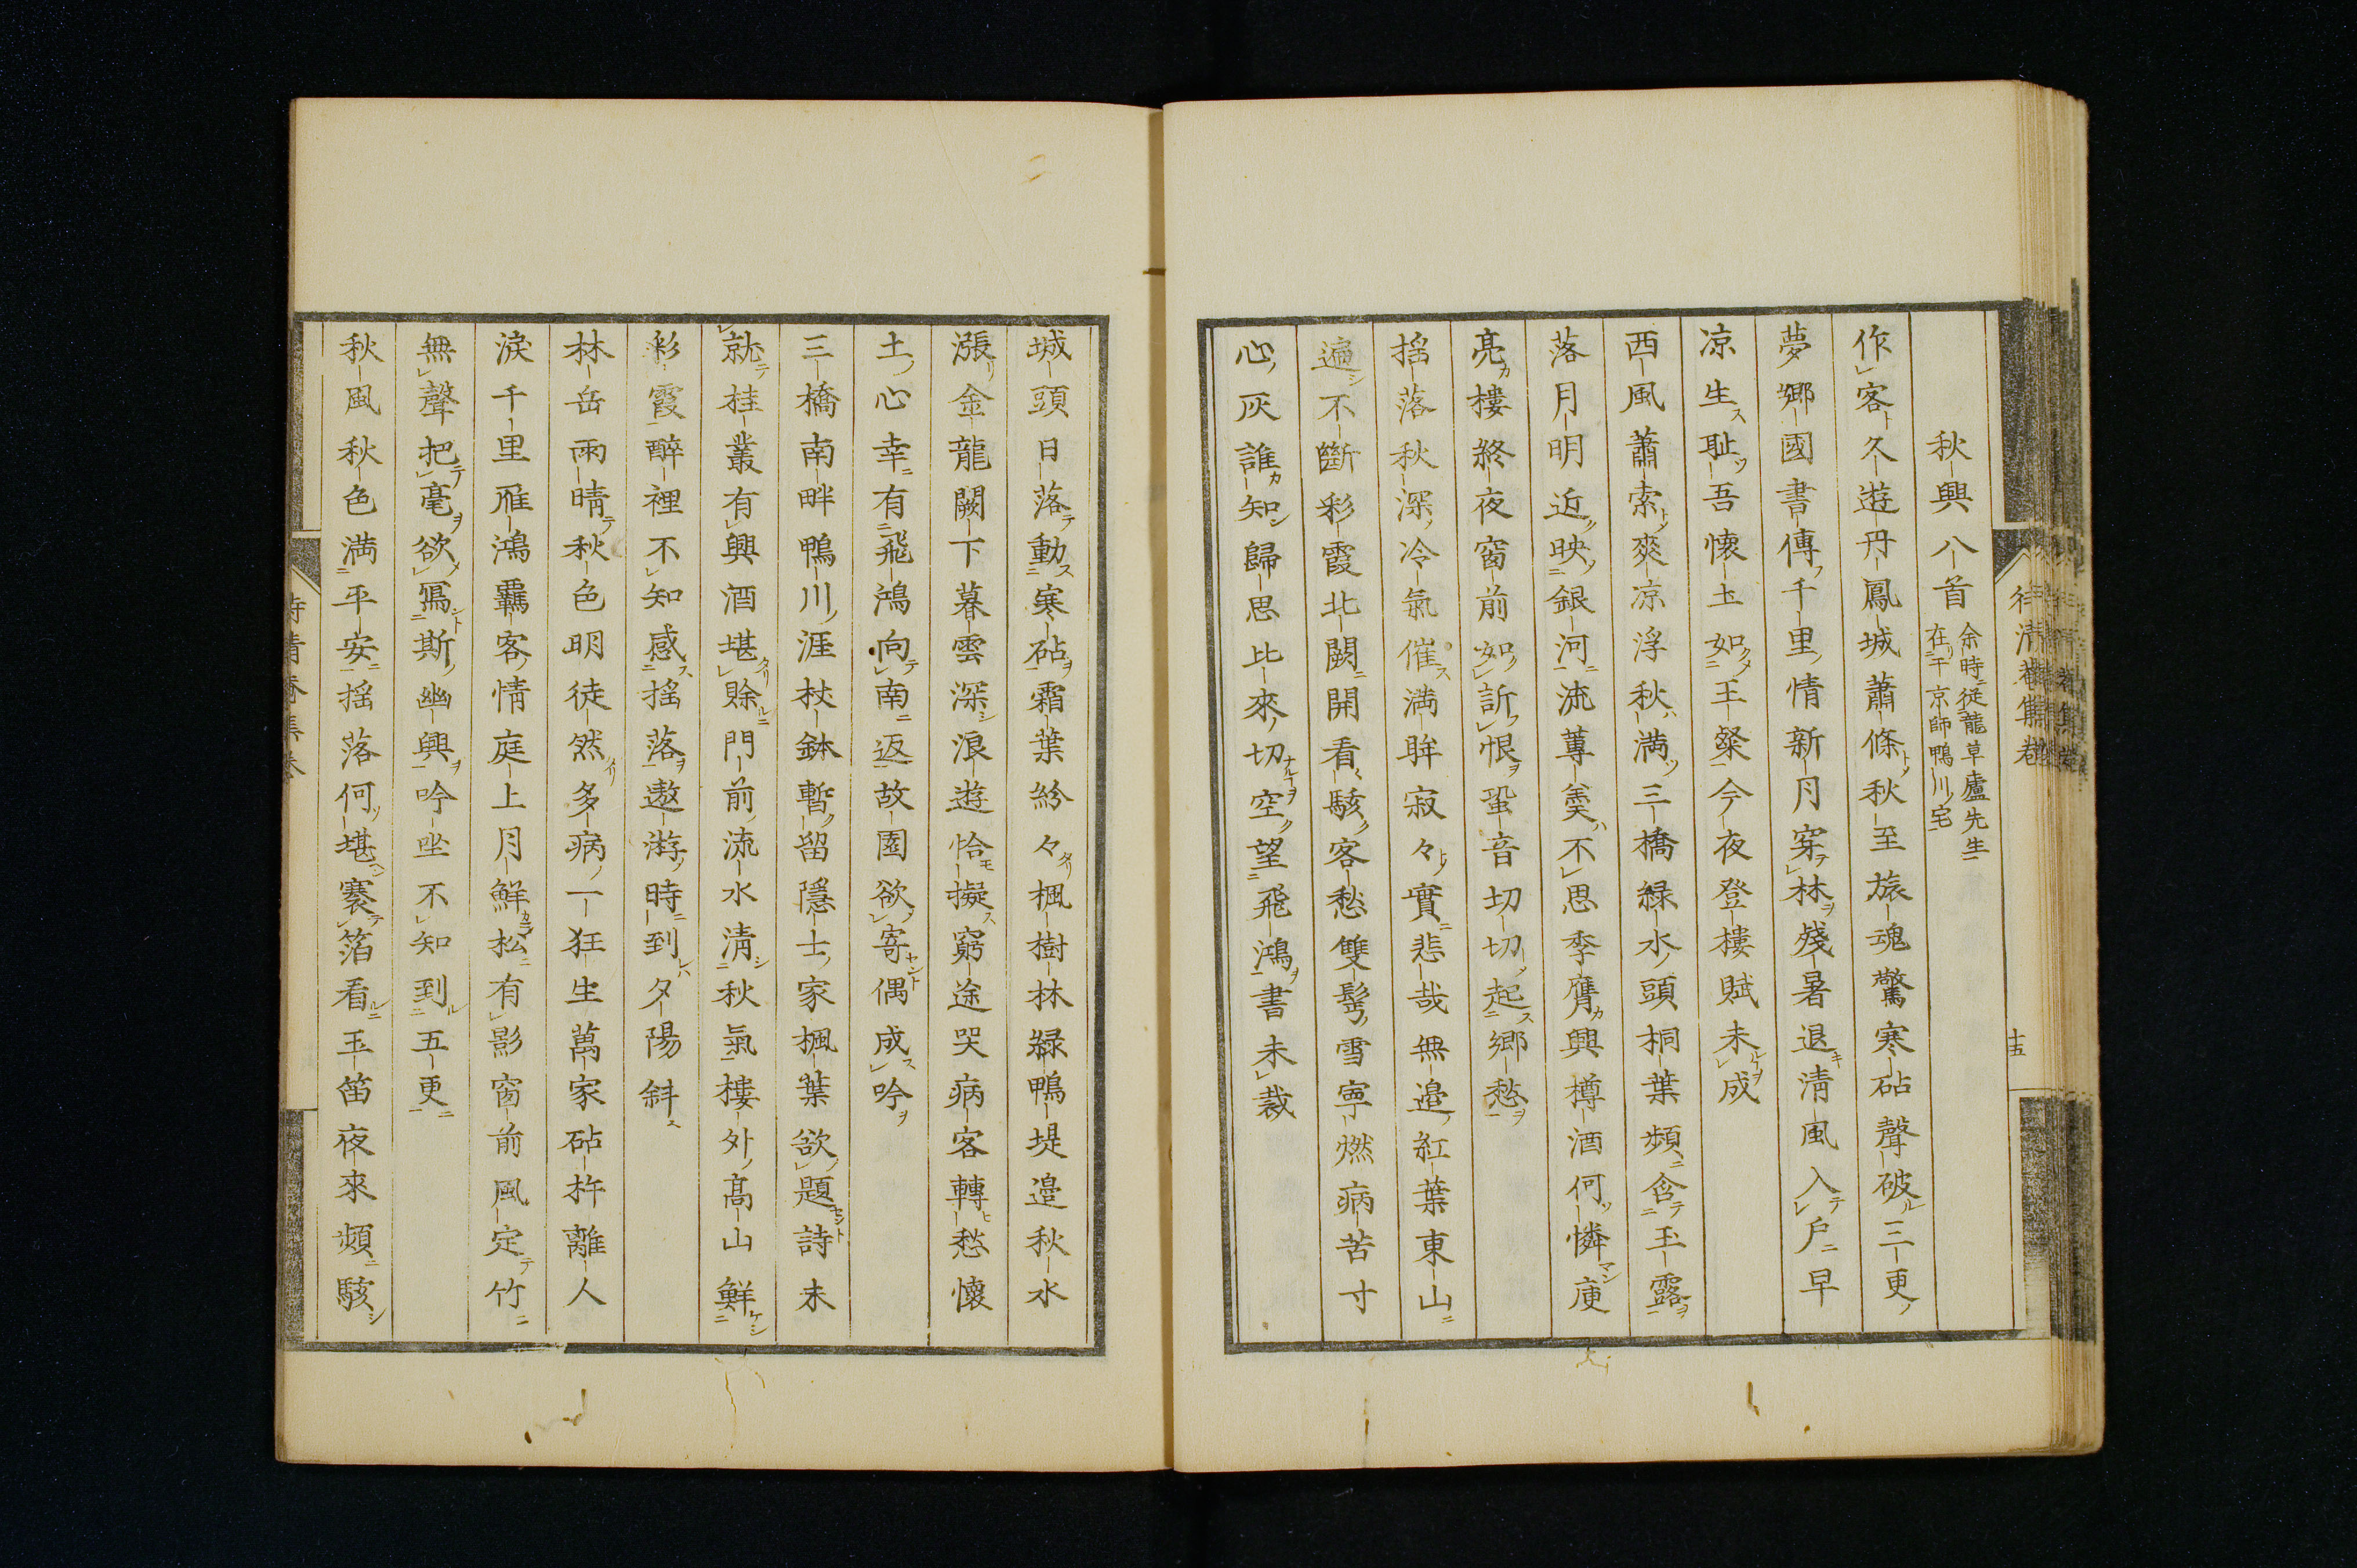 秋興八首 余時從龍草廬先生
在于京師鴨川宅
作客久遊丹鳳城蕭條秋至旅魂驚寒砧聲破三更
夢鄉國書傳千里情新月穿林殘暑退清風入戶早
凉生耻吾懷土如王粲今夜登樓賦未成
西風蕭索爽凉浮秋滿三橋緑水頭桐葉頻含玉露
落月明近映銀河流蓴羹不思季鷹興樽酒何憐庾
亮樓終夜窗前如訴恨蛩音切切起鄉愁
搖落秋深冷氣催滿眸寂々實悲哉無邉紅葉東山
遍不斷彩霞北闕開看看駭客愁雙髩雪寧燃病苦寸
心灰誰知歸思比來切空望飛鴻書未裁
城頭日落動寒砧霜葉紛々楓樹林緑鴨堤邉秋水
漲金龍闕下暮雲深浪遊恰擬窮途哭病客轉愁懷
土心幸有飛鴻向南返故園欲寄偶成吟
三橋南畔鴨川涯杖鉢暫留隱士家楓葉欲題詩未
就桂叢有興酒堪賖門前流水清秋氣樓外高山鮮
彩霞醉裡不知感搖落遨游時到夕陽斜
林岳雨晴秋色明徒然多病一狂生萬家砧杵離人
淚千里雁鴻羈客情庭上月鮮松有影窗前風定竹
無聲把毫欲寫斯幽興吟坐不知到五更
秋風秋色滿平安搖落何堪褰箔看玉笛夜來頻駭
十五